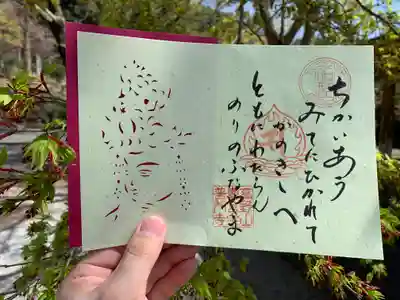 ちかいあう
みてにひかれて
かのきしへ
ともにわたらん
のりのふなやま